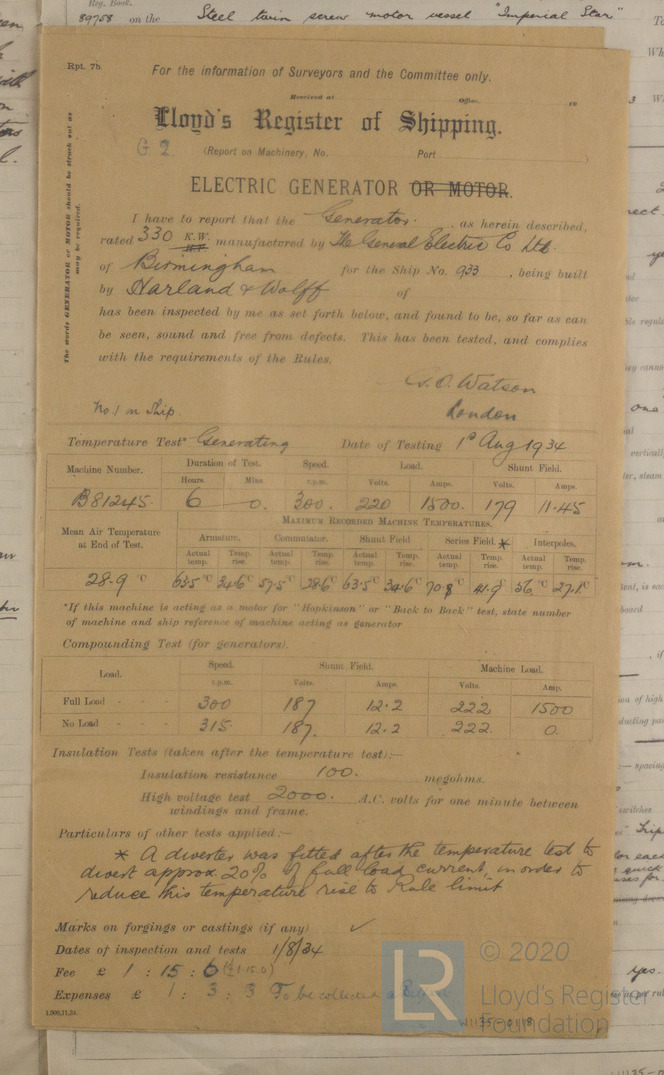 Reg. Book.
89758 on the Steel twin screw motor vessel "Imperial Star"
Rpt. 7b.
For the information of Surveyors and the Committee only.
Received at Office, 19
Lloyd's Register of Shipping.
G. 2. (Report on Machinery, No. Port
ELECTRIC GENERATOR OR MOTOR.
The words GENERATOR or MOTOR should be struck out as
may be required.
I have to report that the Generator. as herein described,
rated 330 K.W. manufactured by The General Electric Co Ltd.
of Birmingham for the Ship No. 933, being built
by Harland & Wolff of
has been inspected by me as set forth below, and found to be, so far as can
be seen, sound and free from defects. This has been tested, and complies
with the requirements of the Rules.
Watson
No. 1 in Ship. London
Temperature Test* Generating Date of Testing 1st Aug 1934
Machine Number. Duration of Test. Speed. Load. Shunt Field.
Hours. Mins. r.p.m. Volts. Amps. Volts. Amps.
B81245. 6 0. 300. 220 1500. 179 11.45
MAXIMUM RECORDED MACHINE TEMPERATURES.
Mean Air Temperature at End of Test. Armature. Commutator. Shunt Field Series Field. * Interpoles.
Actual temp. Temp. rise. Actual temp. Temp. rise. Actual temp. Temp. rise. Actual temp. Temp. rise. Actual temp. Temp. rise.
28.9 °C 63.5 °C 34.6 °C 57.5 °C 28.6 °C 63.5 °C 34.6 °C 70.8 °C 41.9 °C 56 °C 27.1 °C
*If this machine is acting as a motor for "Hopkinson" or "Back to Back" test, state number
of machine and ship reference of machine acting as generator
Compounding Test (for generators).
Load. Speed. Shunt Field. Machine Load.
r.p.m. Volts. Amps. Volts. Amp.
Full Load - - - 300 187 12.2 222 1500
No Load - - - 315 187. 12.2 222. 0.
Insulation Tests (taken after the temperature test):—
Insulation resistance 100. megohms.
High voltage test 2000. A.C. volts for one minute between
windings and frame.
Particulars of other tests applied:—
* A diverter was fitted after the temperature test to
divert approx. 20% of full load current, in order to
reduce this temperature rise to Rule limit
Marks on forgings or castings (if any) ✓
Dates of inspection and tests 1/8/34
Fee £ 1 : 15 : 0
Expenses £ 1 : 3 : 3 To be collected
1,500,11,31.
LR © 2020
Lloyd's Register
Foundation
W1135-0118